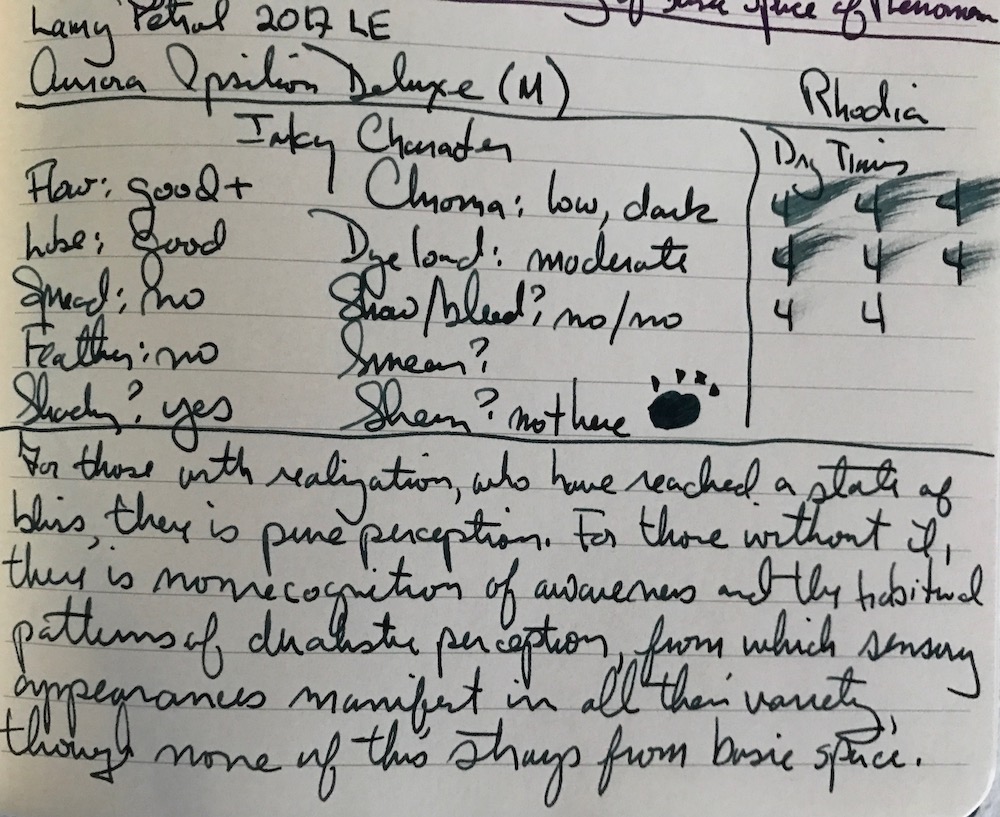 of basic space of Phenomen
Lamy Petrol 2017 LE
Aurora Ipsilon Deluxe (M)
Rhodia
Inky Character
Flow: good+
Lube: Good
Spread: no
Feather: no
Shady? yes
Chroma: low, dark
Dye load: moderate
Show/bleed? no/no
Smear?
Sheen? not here
Dry Times
4 4 4
4 4 4
4 4
For those with realization, who have reached a state of
bliss, there is pure perception. For those without it,
there is nonrecognition of awareness and the habitual
patterns of dualistic perception, from which sensory
appearances manifest in all their variety,
though none of this strays from basic space.